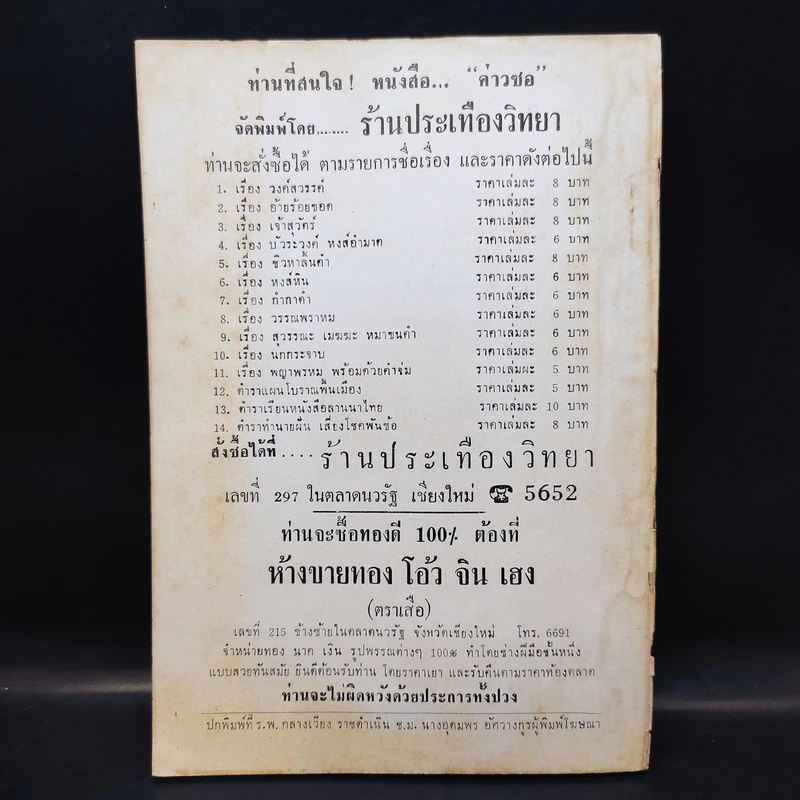 ท่านที่สนใจ! หนังสือ... "ค่าวซอ"
จัดพิมพ์โดย........ ร้านประเทืองวิทยา
ท่านจะสั่งซื้อได้ ตามรายการชื่อเรื่อง และราคาดังต่อไปนี้
1. เรื่อง วงค์สวรรค์ ราคาเล่มละ 8 บาท
2. เรื่อง อ้ายร้อยขอด ราคาเล่มละ 8 บาท
3. เรื่อง เจ้าสุวัตร์ ราคาเล่มละ 8 บาท
4. เรื่อง บัวระวงค์ หงส์อำมาต ราคาเล่มละ 6 บาท
5. เรื่อง ชิวหาลิ้นคำ ราคาเล่มละ 8 บาท
6. เรื่อง หงส์หิน ราคาเล่มละ 6 บาท
7. เรื่อง กำกาดำ ราคาเล่มละ 6 บาท
8. เรื่อง วรรณพราหม ราคาเล่มละ 6 บาท
9. เรื่อง สุวรรณะ เมฆฆะ หมาขนคำ ราคาเล่มละ 6 บาท
10. เรื่อง นกกระจาบ ราคาเล่มละ 6 บาท
11. เรื่อง พญาพรหม พร้อมด้วยคำจ่ม ราคาเล่มผะ 5 บาท
12. ตำราแผนโบราณพื้นเมือง ราคาเล่มละ 5 บาท
13. ตำราเรียนหนังสือลานนาไทย ราคาเล่มละ 10 บาท
14. ตำราทำนายฝัน เสี่ยงโชคพันข้อ ราคาเล่มละ 8 บาท
สั่งซื้อได้ที่.... ร้านประเทืองวิทยา
เลขที่ 297 ในตลาดนวรัฐ เชียงใหม่ ☎ 5652
ท่านจะซื้อทองดี 100% ต้องที่
ห้างขายทอง โอ้ว จิน เฮง
(ตราเสือ)
เลขที่ 215 ข้างซ้ายในตลาดนวรัฐ จังหวัดเชียงใหม่ โทร. 6691
จำหน่ายทอง นาค เงิน รูปพรรณต่างๆ 100% ทำโดยช่างฝีมือชั้นหนึ่ง
แบบสวยทันสมัย ยินดีต้อนรับท่าน โดยราคาเยา และรับคืนตามราคาท้องตลาด
ท่านจะไม่ผิดหวังด้วยประการทั้งปวง
ปกพิมพ์ที่ ร.พ. กลางเวียง ราชดำเนิน ช.ม. นางอุดมพร อัศวางกูรผู้พิมพ์โฆษณา